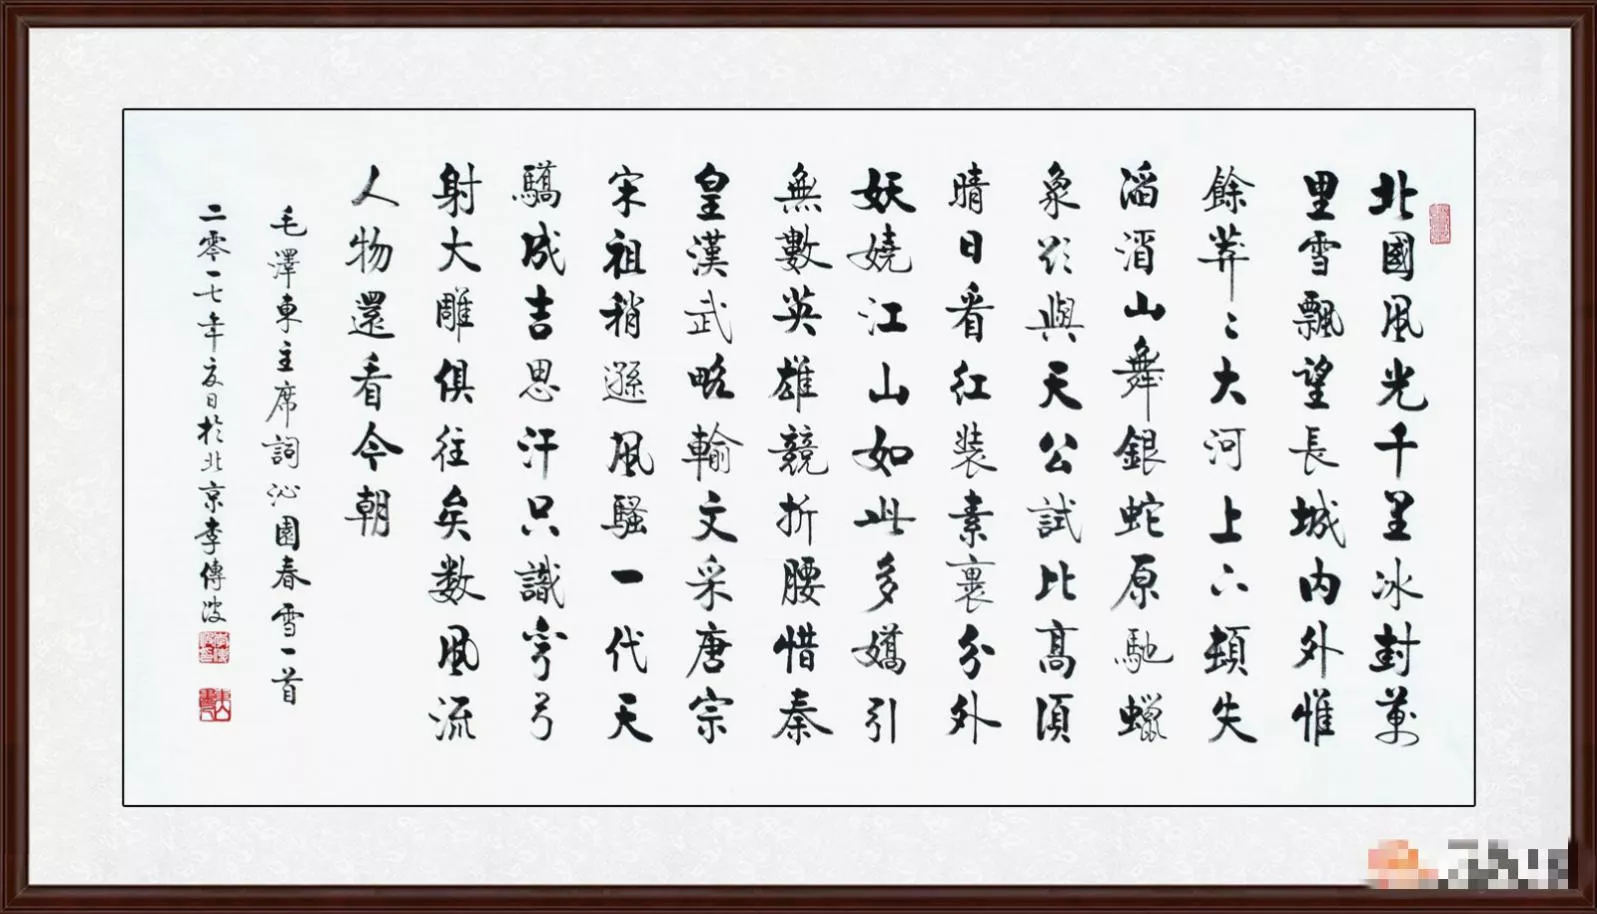 北國風光千里冰封萬
里雪飄望長城內外惟
餘莽〻大河上下頓失
滔滔山舞銀蛇原馳蠟
象欲與天公試比高須
晴日看紅裝素裹分外
妖嬈江山如此多嬌引
無數英雄競折腰惜秦
皇漢武略輸文采唐宗
宋祖稍遜風騷一代天
驕成吉思汗只識彎弓
射大雕俱往矣数風流
人物還看今朝
毛澤東主席詞沁園春雪一首
二零一七年夏日於北京李傳波